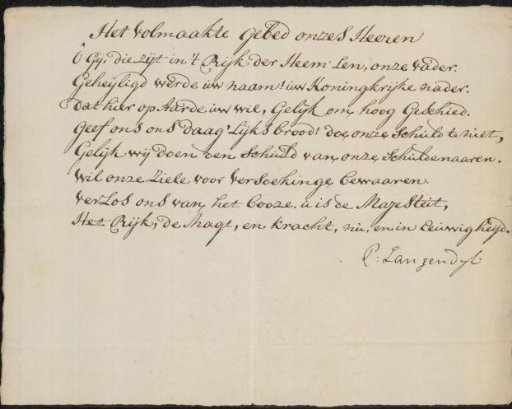 Het Volmaakte Gebed onzes Heeren
O Gy, die zijt in 't Rijk der Heem'len, onze Vader.
Geheyligd werde uw naam! uw Koningkrijke nader.
Dat hier op Aarde uw wil, Gelijk om hoog Geschied.
Geef ons ons daag'lijks brood! doe onze Schuld te niet,
Gelijk wij doen den Schuld van onze Schuldenaaren.
Wil onze Ziele voor Versoekinge bewaaren
Verlos ons van het Booze. u is de Majesteit,
Het Rijk, de Magt, en Kracht, nu, en in Eeuwigheijd.
P: Langendyk